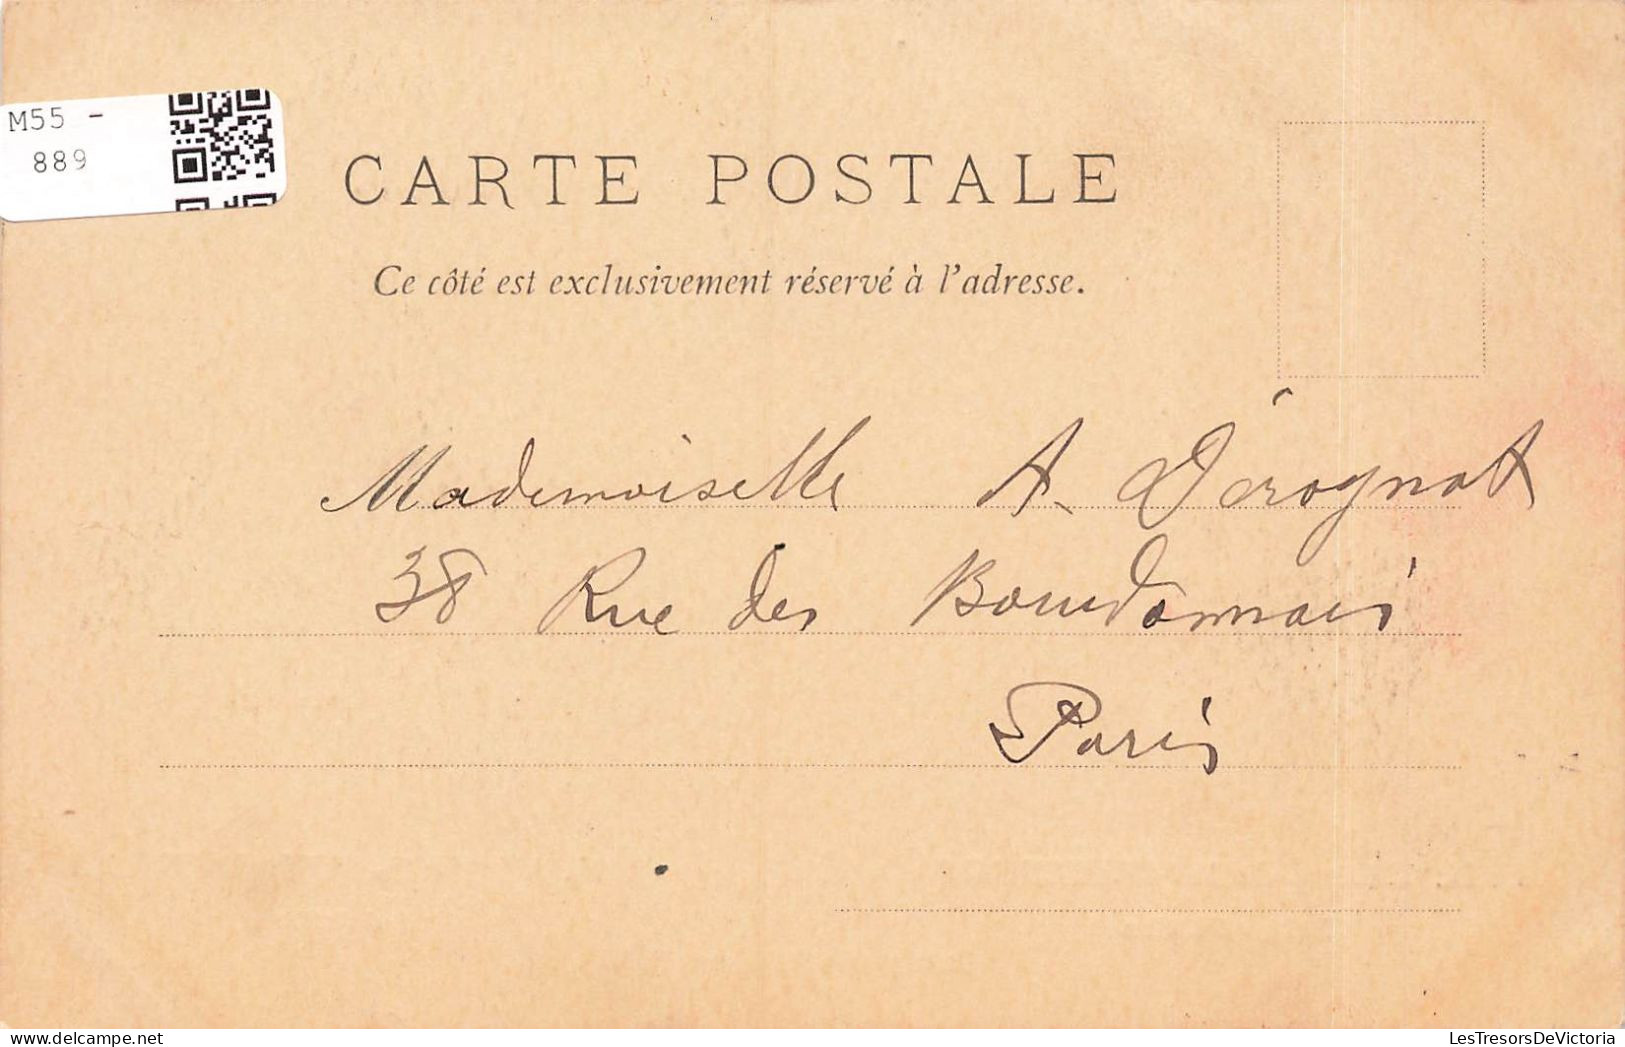 M55 -
889
CARTE POSTALE
Ce côté est exclusivement réservé à l'adresse.
Mademoiselle A. Dérognat
38 Rue des Bourdonnais
Paris
LesTresorsDeVictoria